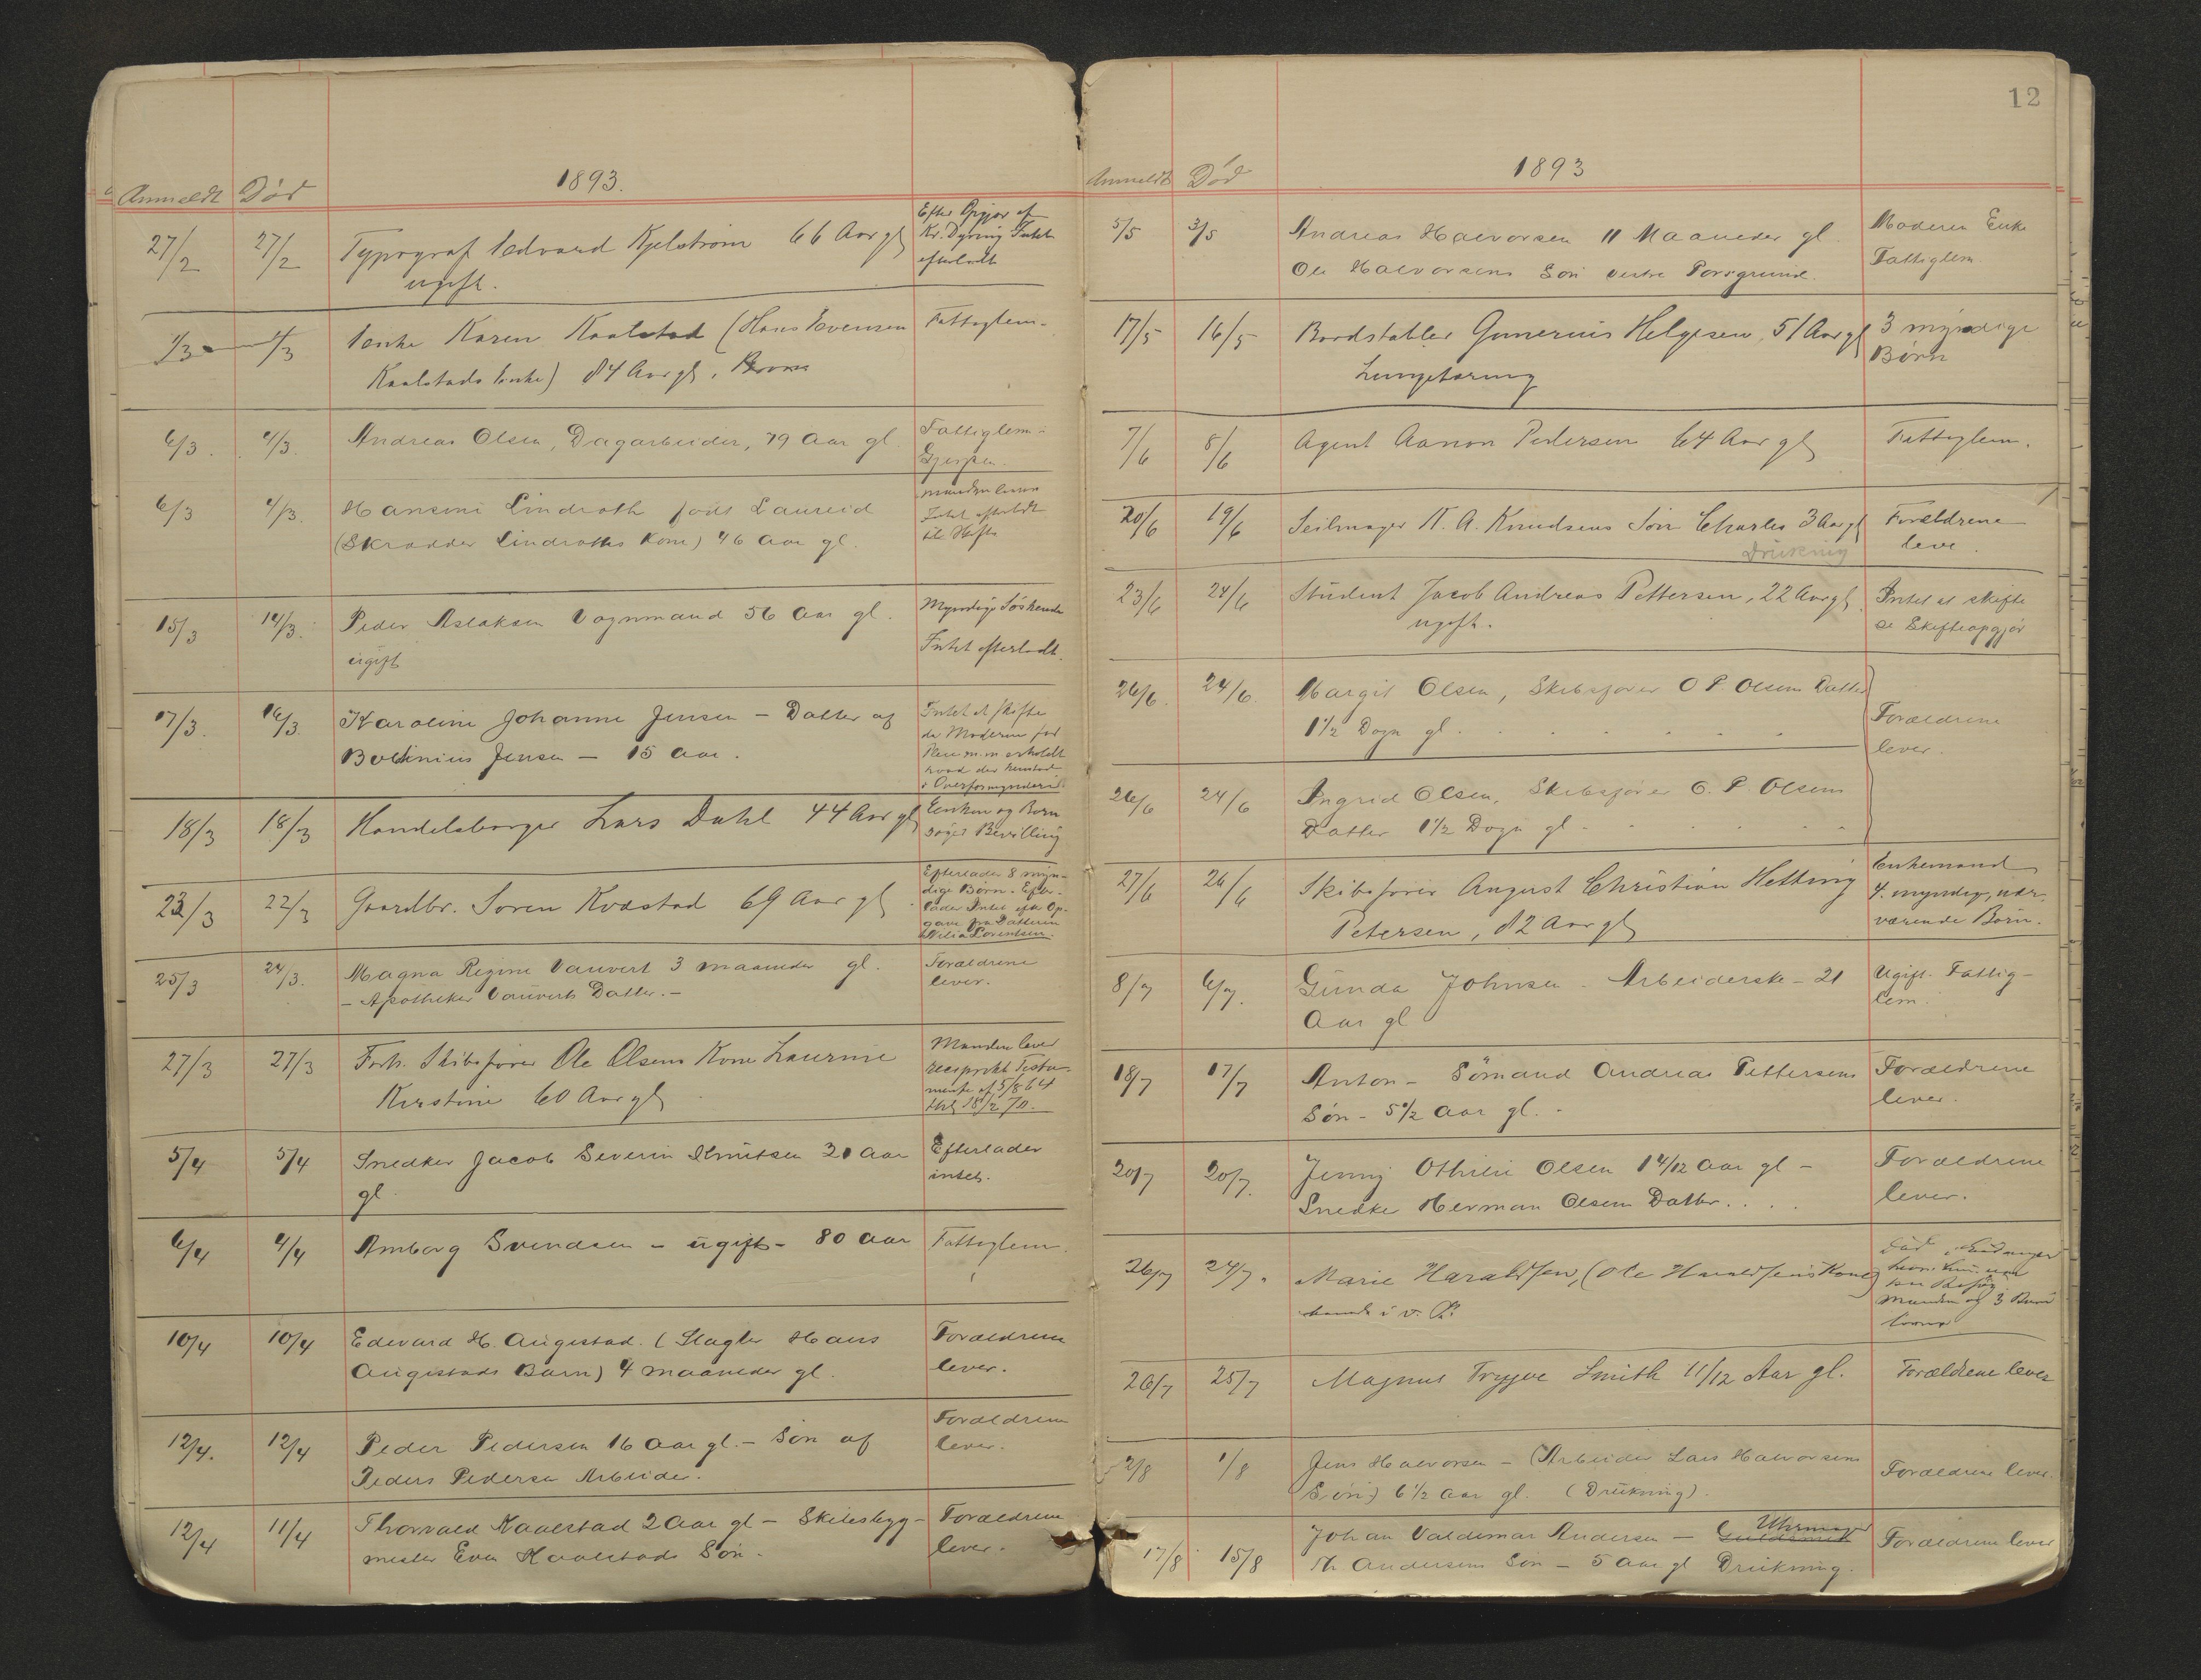 Anmeldt Død 1893.
27/2 27/2 Typograf Edvard Kjelstrøm 66 Aar gl
ugift.
Efter Opgjør af
Kr. Dyring Intet
efterladt
1/3 1/3 Enke Karen Kaalstad (Hans Evensen
Kaalstads Enke) 84 Aar gl.
Fattiglem.
6/3. 4/3. Andreas Olsen, Dagarbeider, 79 Aar gl.
Fattiglem -
Gjerpen.
6/3 4/3. Hansine Lindroth født Laureid
(Skrædder Lindroths Kone) 46 Aar gl.
Manden lever
Intet efterladt
til Skifte
15/3 14/3. Peder Aslaksen Vognmand 56 Aar gl.
ugift
Myndige Søskende
Intet efterladt.
17/3. 16/3. Karoline Johanne Jensen - Datter af
Jensen - 15 Aar.
Intet at skifte
da Moderen for
Pleie m.m. erholdt
hvad der henstod
i Overformynderiet
18/3 18/3 Handelsborger Lars Dahl 44 Aar gl
Enken og Børn
søger Bevilling
23/3 22/3 Gaardbr. Søren Kvæstad 69 Aar gl
Efterlader 8 myn-
dige Børn. Efter-
lader Intet efter Op-
gave fra Datteren
Lorentsen.
25/3 24/3. Magna Regine Vauvert 3 maaneder gl.
- Apotheker Vauverts Datter. -
Forældrene
lever.
27/3 27/3 Forh. Skibsfører Ole Olsens Kone Laurine
Kirstine 60 Aar gl
Manden lever
reciprokt Testa-
mente af 5/8 64
thl. 18/2 70.
5/4 5/4 Snedker Jacob Severin Knutsen 20 Aar
gl.
Efterlader
intet.
6/4 4/4 Amborg Svendsen - ugift - 80 Aar
Fattiglem.
10/4 10/4 Edevard H. Augestad. (Slagter Hans
Augestads Barn) 4 maaneder gl.
Forældrene
lever.
12/4. 12/4 Peder Pedersen 16 Aar gl. - Søn af
Peders Pedersen Arbeider.
Forældrene
lever.
12/4 11/4 Thorvald Kaalstad 2 Aar gl - Skibsbyg-
mester Even Kaalstads Søn.
Forældrene
lever.
12
Anmeldt Død 1893
5/5 3/5 Andreas Halvorsen 11 Maaneder gl.
Ole Halvorsens Søn vestre Porsgrund.
Moderen Enke
Fattiglem.
17/5 16/5 Bordstabler Gunerius Helgesen, 51 Aar gl
Lungetæring
3 myndige
Børn
7/6 8/6 Agent Aanon Pedersen 64 Aar gl
Fattiglem.
20/6 19/6 Seilmager K. A. Knudsens Søn Charles 3 Aar gl
Drukning
Forældrene
leve.
23/6 24/6 Student Jacob Andreas Pettersen, 22 Aar gl
ugift.
Intet at skifte
se Skifteopgjør
26/6. 24/6. Margit Olsen, Skibsfører O. P. Olsens Datter
1 1/2 Døgn gl.
Forældrene
lever.
26/6 24/6 Ingrid Olsen, Skibsfører O. P. Olsens
Datter 1 1/2 Døgn gl.
27/6 26/6 Skibsfører August Christian Hetting
Petersen, 82 Aar gl
Enkemand
4 myndige, nær-
værende Børn.
8/7 6/7. Gunda Johnsen - Arbeiderske - 21
Aar gl
Ugift. Fattig-
lem.
18/7 17/7 Anton - Sømand Andreas Pettersens
Søn - 5 1/2 Aar gl. -
Forældrene
lever.
20/7 20/7. Jenny Othilie Olsen 1 4/12 Aar gl -
Snedker Herman Olsens Datter. . . .
Forældrene
lever.
26/7 24/7. Marie Haraldsen, (Ole Haraldsens Kone)
i v. P.
Død i
hvor hun var
paa Besøg
Manden og 3 Børn
lever
26/7 25/7 Magnus Trygve Smith 11/12 Aar gl.
Forældrene lever
2/8 1/8 Jens Halvorsen - (Arbeider Lars Halvorsens
Søn) 6 1/2 Aar gl. (Drukning).
Forældrene lever.
17/8 15/8 Johan Valdemar Andersen - Guldsmed Uhrmager
Th. Andersens Søn - 5 Aar gl Drukning.
Forældrene lever